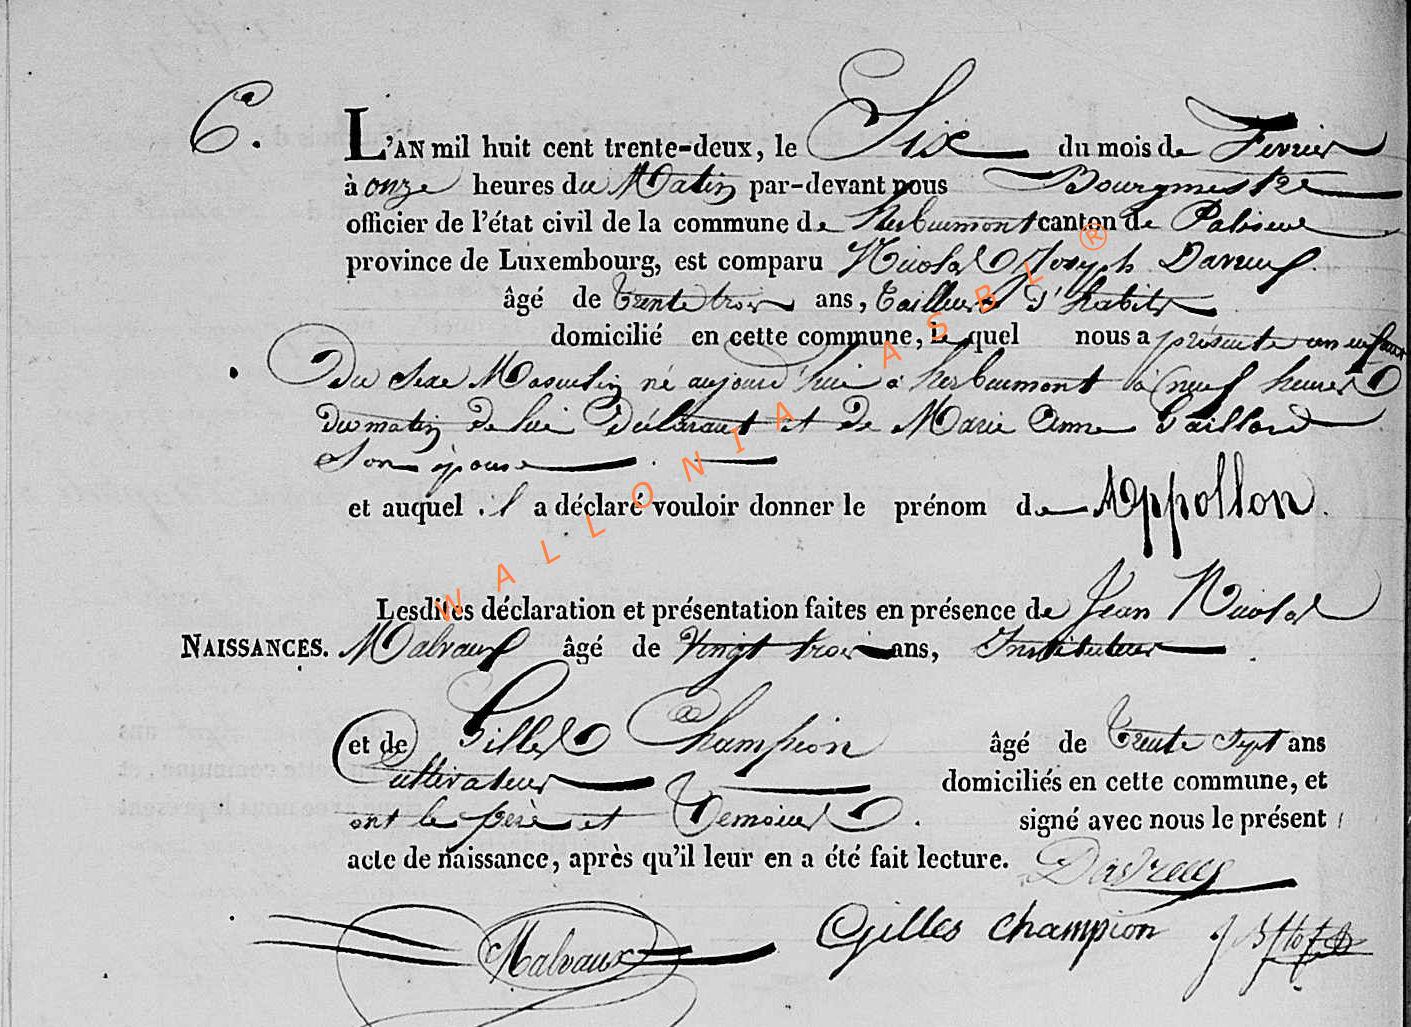 6.
L'AN mil huit cent trente-deux, le Six du mois de Fevrier
à onze heures du Matin par-devant nous Bourgmestre
officier de l'état civil de la commune de herbeumont canton de Paliseul
province de Luxembourg, est comparu Nicolas Joseph Davreux
âgé de trente trois ans, Tailleur d'habits
domicilié en cette commune, lequel nous a présenté un enfant
Du Sexe Masculin né aujourd'hui à herbeumont à neuf heures
du matin de lui Déclarant et de Marie Anne Gaillard
Son épouse
et auquel il a déclaré vouloir donner le prénom de Appollon.
Lesdites déclaration et présentation faites en présence de Jean Nicolas
NAISSANCES. Malvaux âgé de Vingt trois ans, Instituteur
et de Gilles Champion âgé de Trente Sept ans
Cultivateur domiciliés en cette commune, et
ont le père et Temoins signé avec nous le présent
acte de naissance, après qu'il leur en a été fait lecture. Davreux
Malvaux Gilles Champion
WALLONIA ASBL ®